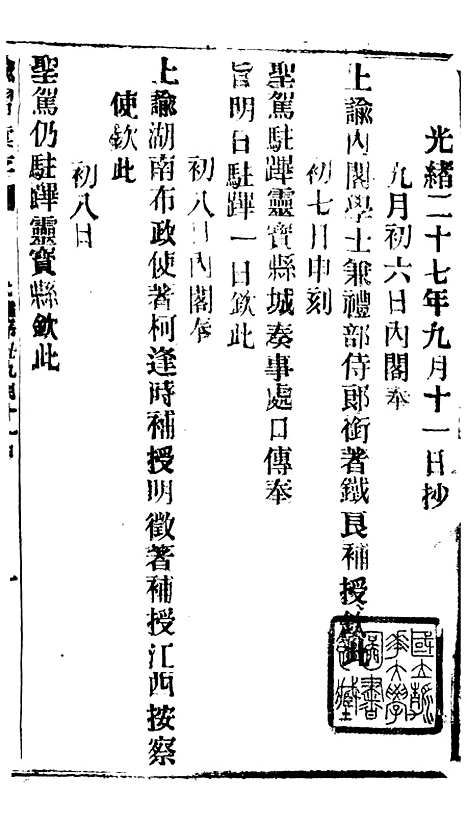 光緒二十七年九月十一日抄
九月初六日內閣奉
上諭內閣學士兼禮部侍郎銜著鐵良補授欽此
初七日申刻
聖駕駐蹕靈寶縣城奏事處口傳奉
旨明日駐蹕一日欽此
初八日內閣奉
上諭湖南布政使著柯逢時補授明徵著補授江西按察
使欽此
初八日
聖駕仍駐蹕靈寶縣欽此
一
國立
大學
圖書
藏